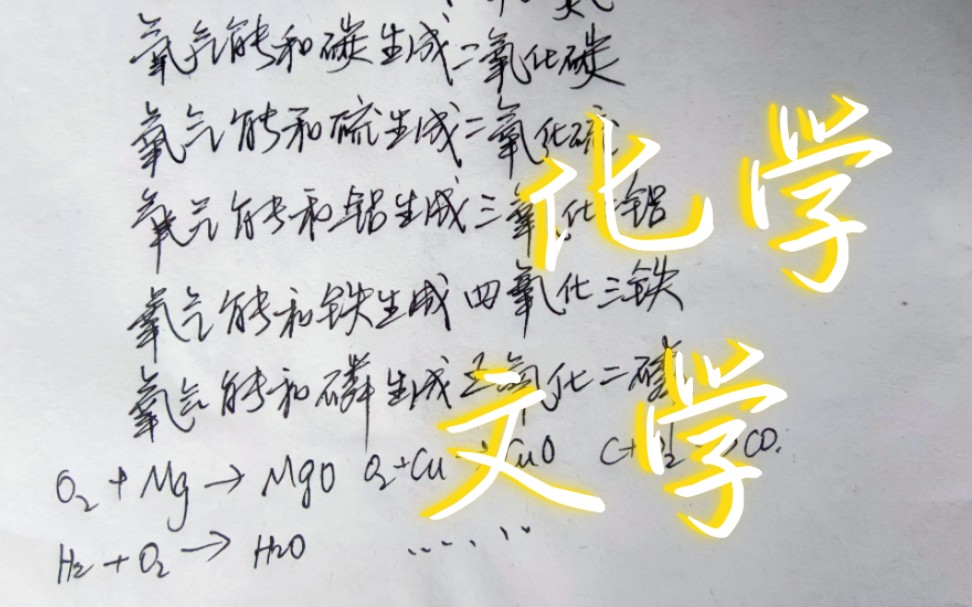 氧气能和碳生成二氧化碳
氧气能和硫生成二氧化硫
氧气能和铝生成三氧化二铝
氧气能和铁生成四氧化三铁
氧气能和磷生成五氧化二磷
O₂+Mg→MgO O₂+Cu→CuO C+O₂→CO.
H₂+O₂→H₂O ......
化学
文学